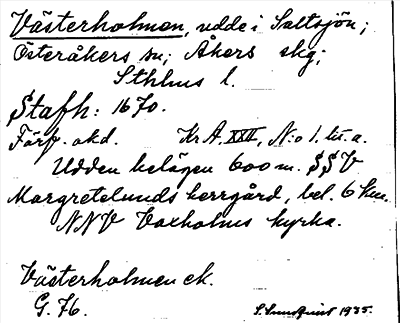 Västerholmen, udde i Saltsjön;
Österåkers sn; Åkers skg;
Sthlms l.
Stafh: 1670.
Förf. okd. KrA. XXII, N:o 1. lit. a.
Udden belägen 600 m. SSV
Margretelunds herrgård, bel. 6 km.
NNV Vaxholms kyrka.
Västerholmen ek.
G. 76. S. Sundqvist 1935.